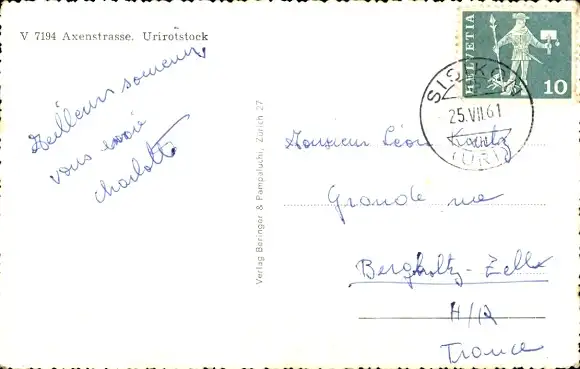 V 7194 Axenstrasse. Urirotstock
Meilleurs souvenirs
vous envoie
Charlotte
Verlag Beringer & Pampaluchi, Zürich 27
HELVETIA
10
SISIKON
25.VII.61
(URI)
Monsieur Léon Kuntz
Grande rue
Bergholtz-Zell
H/R
France